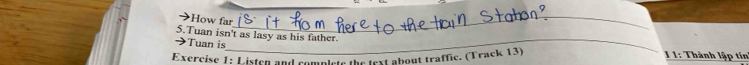 →How far is it from here to the train Station?
5.Tuan isn't as lasy as his father.
→Tuan is
Exercise 1: Listen and complete the text about traffic. (Track 13)
1 1: Thành lập tín